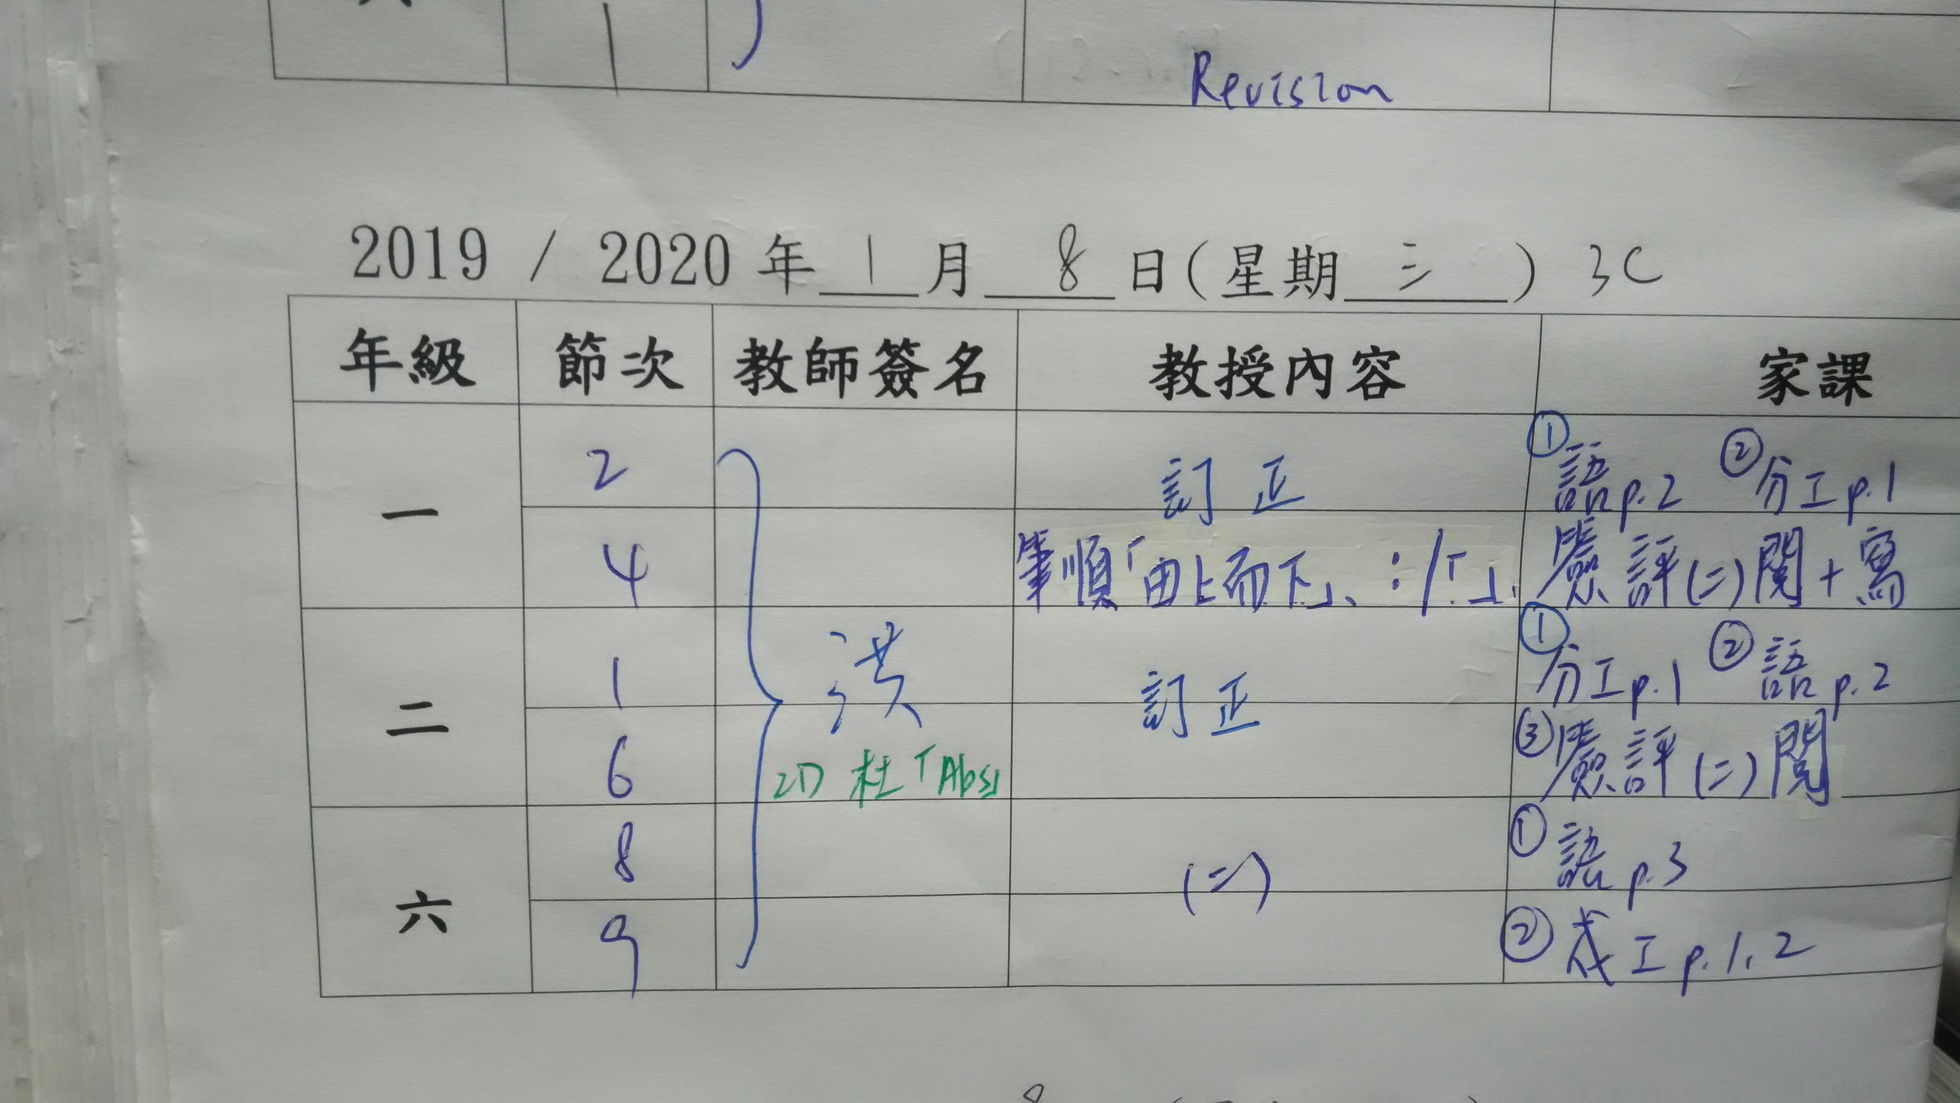 Revision
2019 / 2020 年 1 月 8 日(星期 三 ) 3C
年級 節次 教師簽名 教授內容 家課
一 2 訂正 ①語p.2 ②分工p.1
4 筆順「由上而下」、：/「」、 展評(二)閱+寫
二 1 洪 訂正 ①分工p.1 ②語p.2
6 杜「Abs」 ③展評(二)閱
六 8 (二) ①語p.3
9 ②成工p.1.2